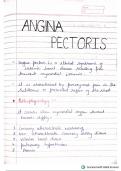 ANGINA
PECTORIS
Angina pectoris is a clinical syndrome of
Ischemic heart disease resulting from
transient myocardial ischemia.
It is characterised by paroxysmal pain in the
substernal or precordial region of the chest
Pathophysiology
It occurs when myocardial oxygen demand
exceeds supply.
Coronary atherosclerosis
coronary artery disease
Valvular heart disease
Pulmonary hypertension